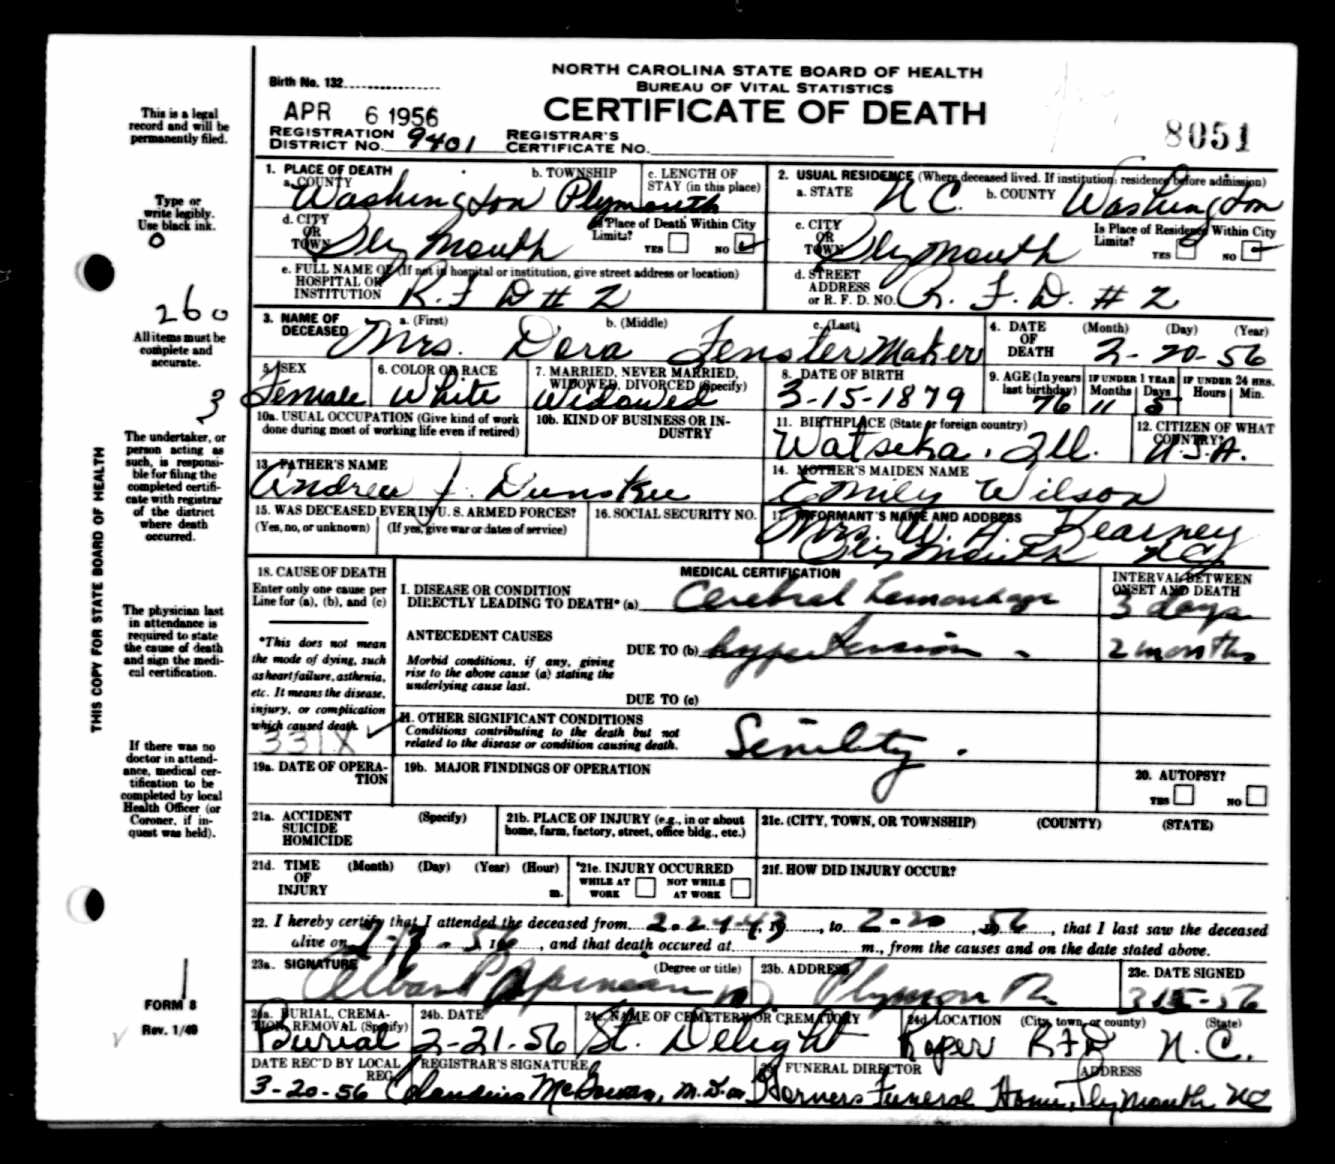 NORTH CAROLINA STATE BOARD OF HEALTH
BUREAU OF VITAL STATISTICS
CERTIFICATE OF DEATH
Birth No. 132
APR 6 1956
8051
REGISTRATION DISTRICT NO. 9401 REGISTRAR'S CERTIFICATE NO.
This is a legal record and will be permanently filed.
Type or write legibly. Use black ink.
0
260
All items must be complete and accurate.
3
The undertaker, or person acting as such, is responsible for filing the completed certificate with registrar of the district where death occurred.
The physician last in attendance is required to state the cause of death and sign the medical certification.
If there was no doctor in attendance, medical certification to be completed by local Health Officer (or Coroner, if inquest was held).
THIS COPY FOR STATE BOARD OF HEALTH
1
FORM 8
Rev. 1/49
1. PLACE OF DEATH
a. COUNTY Washington
b. TOWNSHIP Plymouth
c. LENGTH OF STAY (in this place)
2. USUAL RESIDENCE (Where deceased lived. If institution: residence before admission)
a. STATE N C. b. COUNTY Washington
d. CITY OR TOWN Plymouth
Is Place of Death Within City Limits? YES NO ✓
c. CITY OR TOWN Plymouth
Is Place of Residence Within City Limits? YES NO ✓
e. FULL NAME OF (If not in hospital or institution, give street address or location) HOSPITAL OR INSTITUTION R. F D # 2
d. STREET ADDRESS or R. F. D. NO. R. F. D. # 2
3. NAME OF DECEASED a. (First) b. (Middle) c. (Last)
Mrs. Dora FensterMaker
4. DATE OF DEATH (Month) (Day) (Year)
2-20-56
5. SEX Female
6. COLOR OR RACE White
7. MARRIED, NEVER MARRIED, WIDOWED, DIVORCED (Specify) Widowed
8. DATE OF BIRTH 3-15-1879
9. AGE (In years last birthday) 76 IF UNDER 1 YEAR Months 11 Days 5 IF UNDER 24 HRS. Hours Min.
10a. USUAL OCCUPATION (Give kind of work done during most of working life even if retired)
10b. KIND OF BUSINESS OR INDUSTRY
11. BIRTHPLACE (State or foreign country) Watseka, Ill.
12. CITIZEN OF WHAT COUNTRY? U.S.A.
13. FATHER'S NAME Andrew J. Dunskee
14. MOTHER'S MAIDEN NAME Emily Wilson
15. WAS DECEASED EVER IN U. S. ARMED FORCES?
(Yes, no, or unknown) (If yes, give war or dates of service)
16. SOCIAL SECURITY NO.
17. INFORMANT'S NAME AND ADDRESS Mrs. W. H. Kearney
Plymouth NC
18. CAUSE OF DEATH
Enter only one cause per Line for (a), (b), and (c)
*This does not mean the mode of dying, such as heart failure, asthenia, etc. It means the disease, injury, or complication which caused death.
331X ✓
MEDICAL CERTIFICATION
INTERVAL BETWEEN ONSET AND DEATH
I. DISEASE OR CONDITION DIRECTLY LEADING TO DEATH* (a) Cerebral Hemorrhage 3 days
ANTECEDENT CAUSES
Morbid conditions, if any, giving rise to the above cause (a) stating the underlying cause last.
DUE TO (b) hypertension 2 months
DUE TO (c)
II. OTHER SIGNIFICANT CONDITIONS
Conditions contributing to the death but not related to the disease or condition causing death.
Senility.
19a. DATE OF OPERATION
19b. MAJOR FINDINGS OF OPERATION
20. AUTOPSY? YES NO
21a. ACCIDENT SUICIDE HOMICIDE (Specify)
21b. PLACE OF INJURY (e.g., in or about home, farm, factory, street, office bldg., etc.)
21c. (CITY, TOWN, OR TOWNSHIP) (COUNTY) (STATE)
21d. TIME OF INJURY (Month) (Day) (Year) (Hour) m.
21e. INJURY OCCURRED WHILE AT WORK NOT WHILE AT WORK
21f. HOW DID INJURY OCCUR?
22. I hereby certify that I attended the deceased from 2-24-43, to 2-20, 56, that I last saw the deceased
alive on , and that death occured at m., from the causes and on the date stated above.
23a. SIGNATURE (Degree or title)
23b. ADDRESS Plymouth
23c. DATE SIGNED 3 15-56
24a. BURIAL, CREMATION, REMOVAL (Specify) Burial
24b. DATE 2-21-56
24c. NAME OF CEMETERY OR CREMATORY St. Delight
24d. LOCATION (City, town, or county) (State) Roper RFD N.C.
DATE REC'D BY LOCAL REG. 3-20-56
REGISTRAR'S SIGNATURE Claudius McGowan, M.D.
25. FUNERAL DIRECTOR ADDRESS
Horners Funeral Home, Plymouth NC